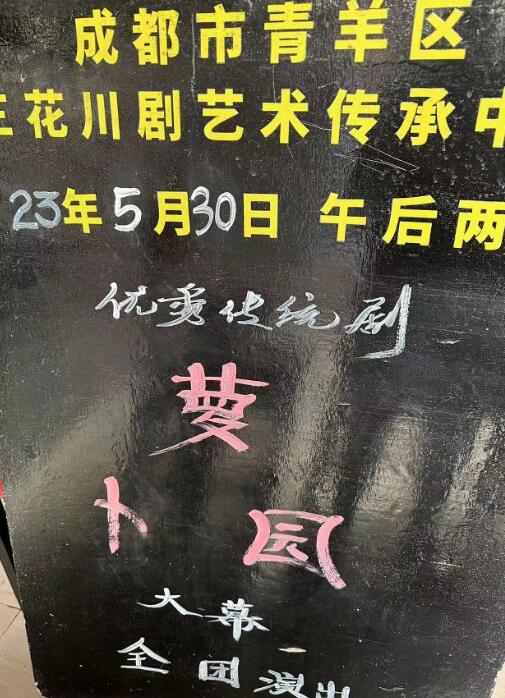 成都市青羊区
花川剧艺术传承中
23年5月30日 午后两
优秀传统剧
萝
卜 园
大幕
全团演出